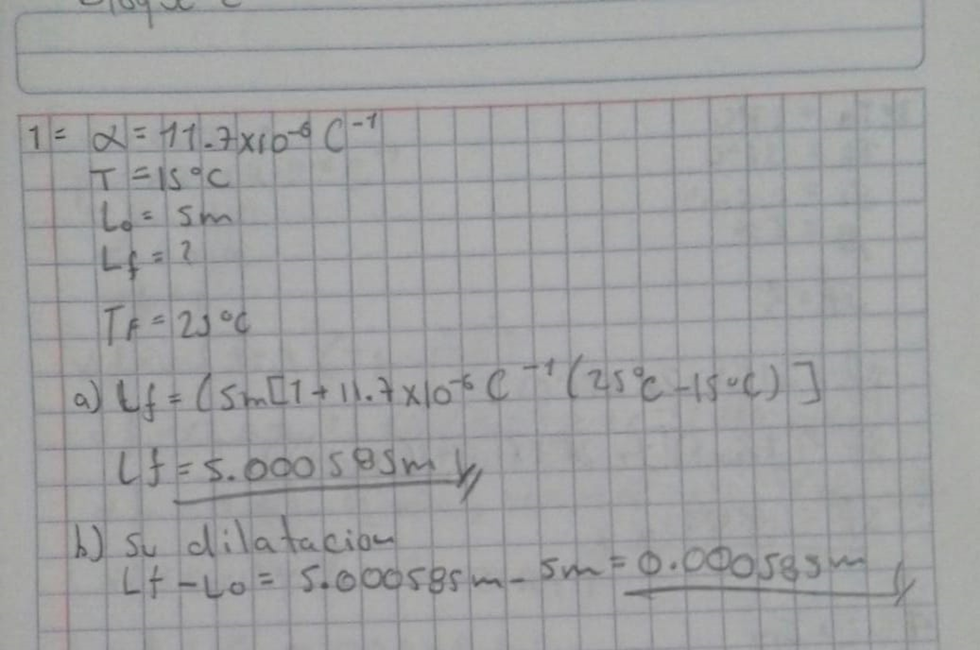 1= α = 11.7x10⁻⁶ C⁻¹
T = 15°C
L₀ = 5m
Lf = ?
TF = 25°C
a) Lf = (5m[1+11.7x10⁻⁶ C⁻¹ (25°C-15°C)]
Lf = 5.000585m
b) Su dilatacion
Lf - L₀ = 5.000585m - 5m = 0.000585m